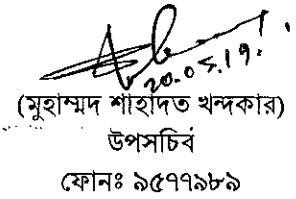 20.05.19.
(মুহাম্মদ শাহাদত খন্দকার)
উপসচিব
ফোনঃ ৯৫৭৭৯৮৯